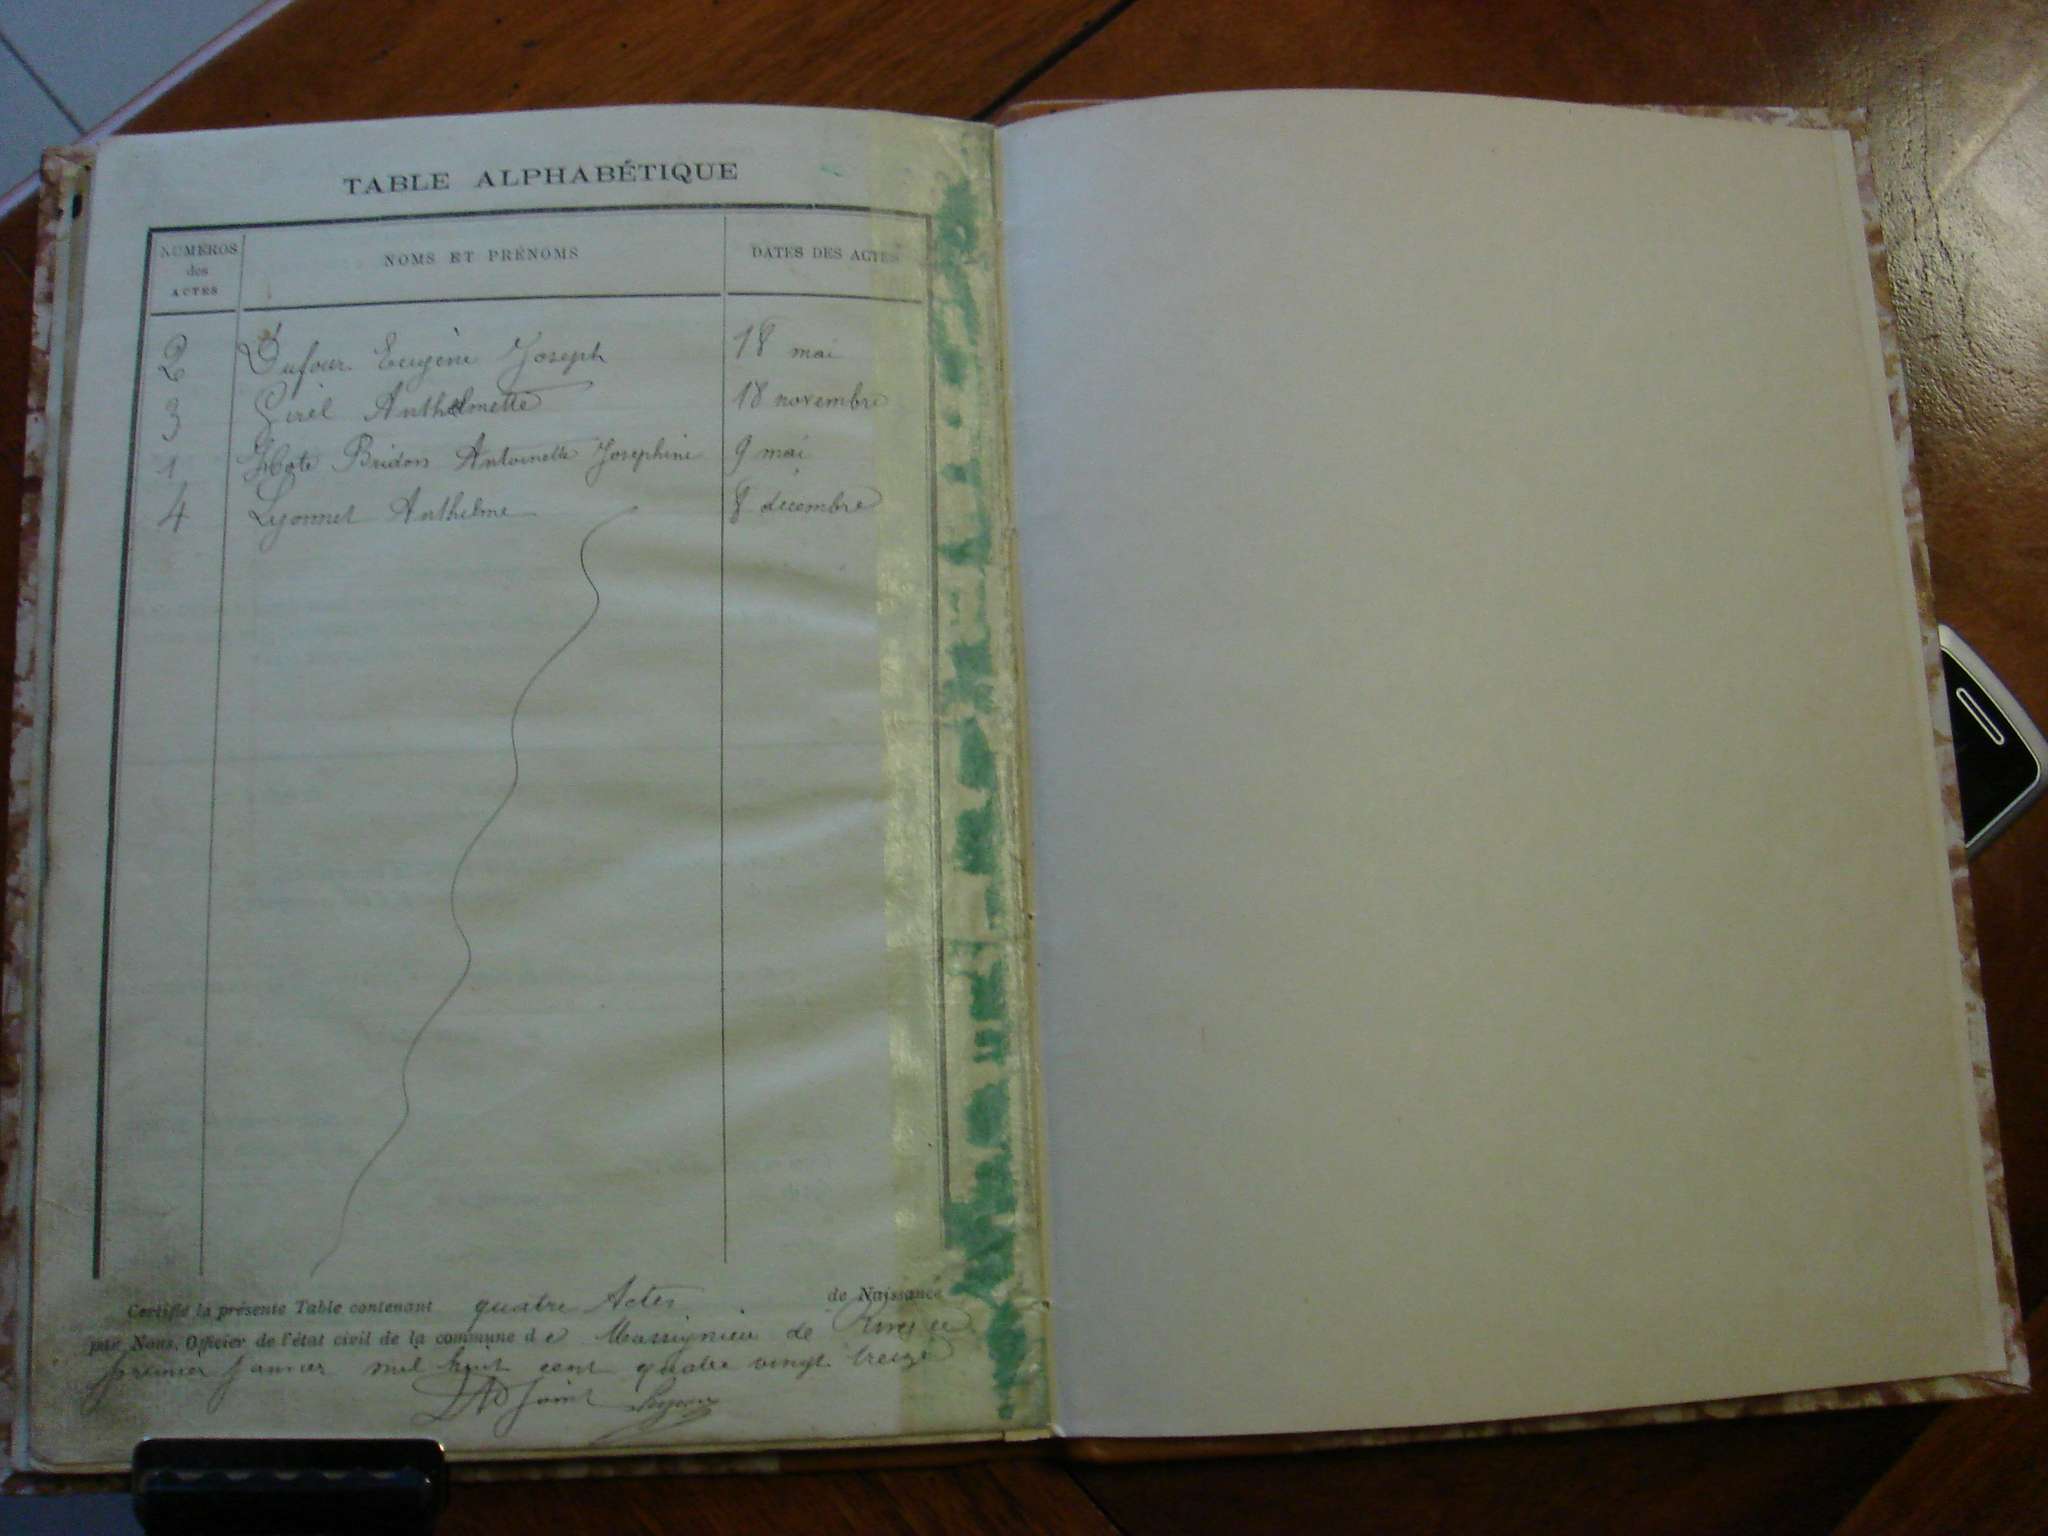 TABLE ALPHABÉTIQUE
NUMÉROS des ACTES NOMS ET PRÉNOMS DATES DES ACTES
2 Dufour Eugène Joseph 18 mai
3 Girel Anthelmette 18 novembre
1 Hote Bridon Antoinette Josephine 9 mai
4 Lyonnet Anthelme 8 décembre
Certifié la présente Table contenant quatre Actes de Naissance
par Nous, Officier de l'état civil de la commune de Massignieu de Rives ce
premier Janvier mil huit cent quatre vingt treize